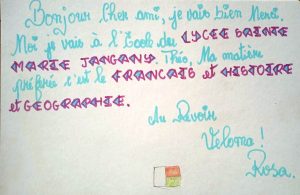 Bonjour Cher ami, je vais bien Merci.
Moi je vais à l'École du LYCEE SAINTE
MARIE JANGANY. Théo, Ma matière
préférée c'est le FRANCAIS et HISTOIRE
et GEOGRAPHIE.
Au Revoir
Veloma!
Rosa.